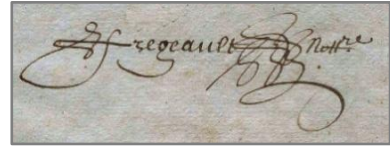 Fregeault Nottre